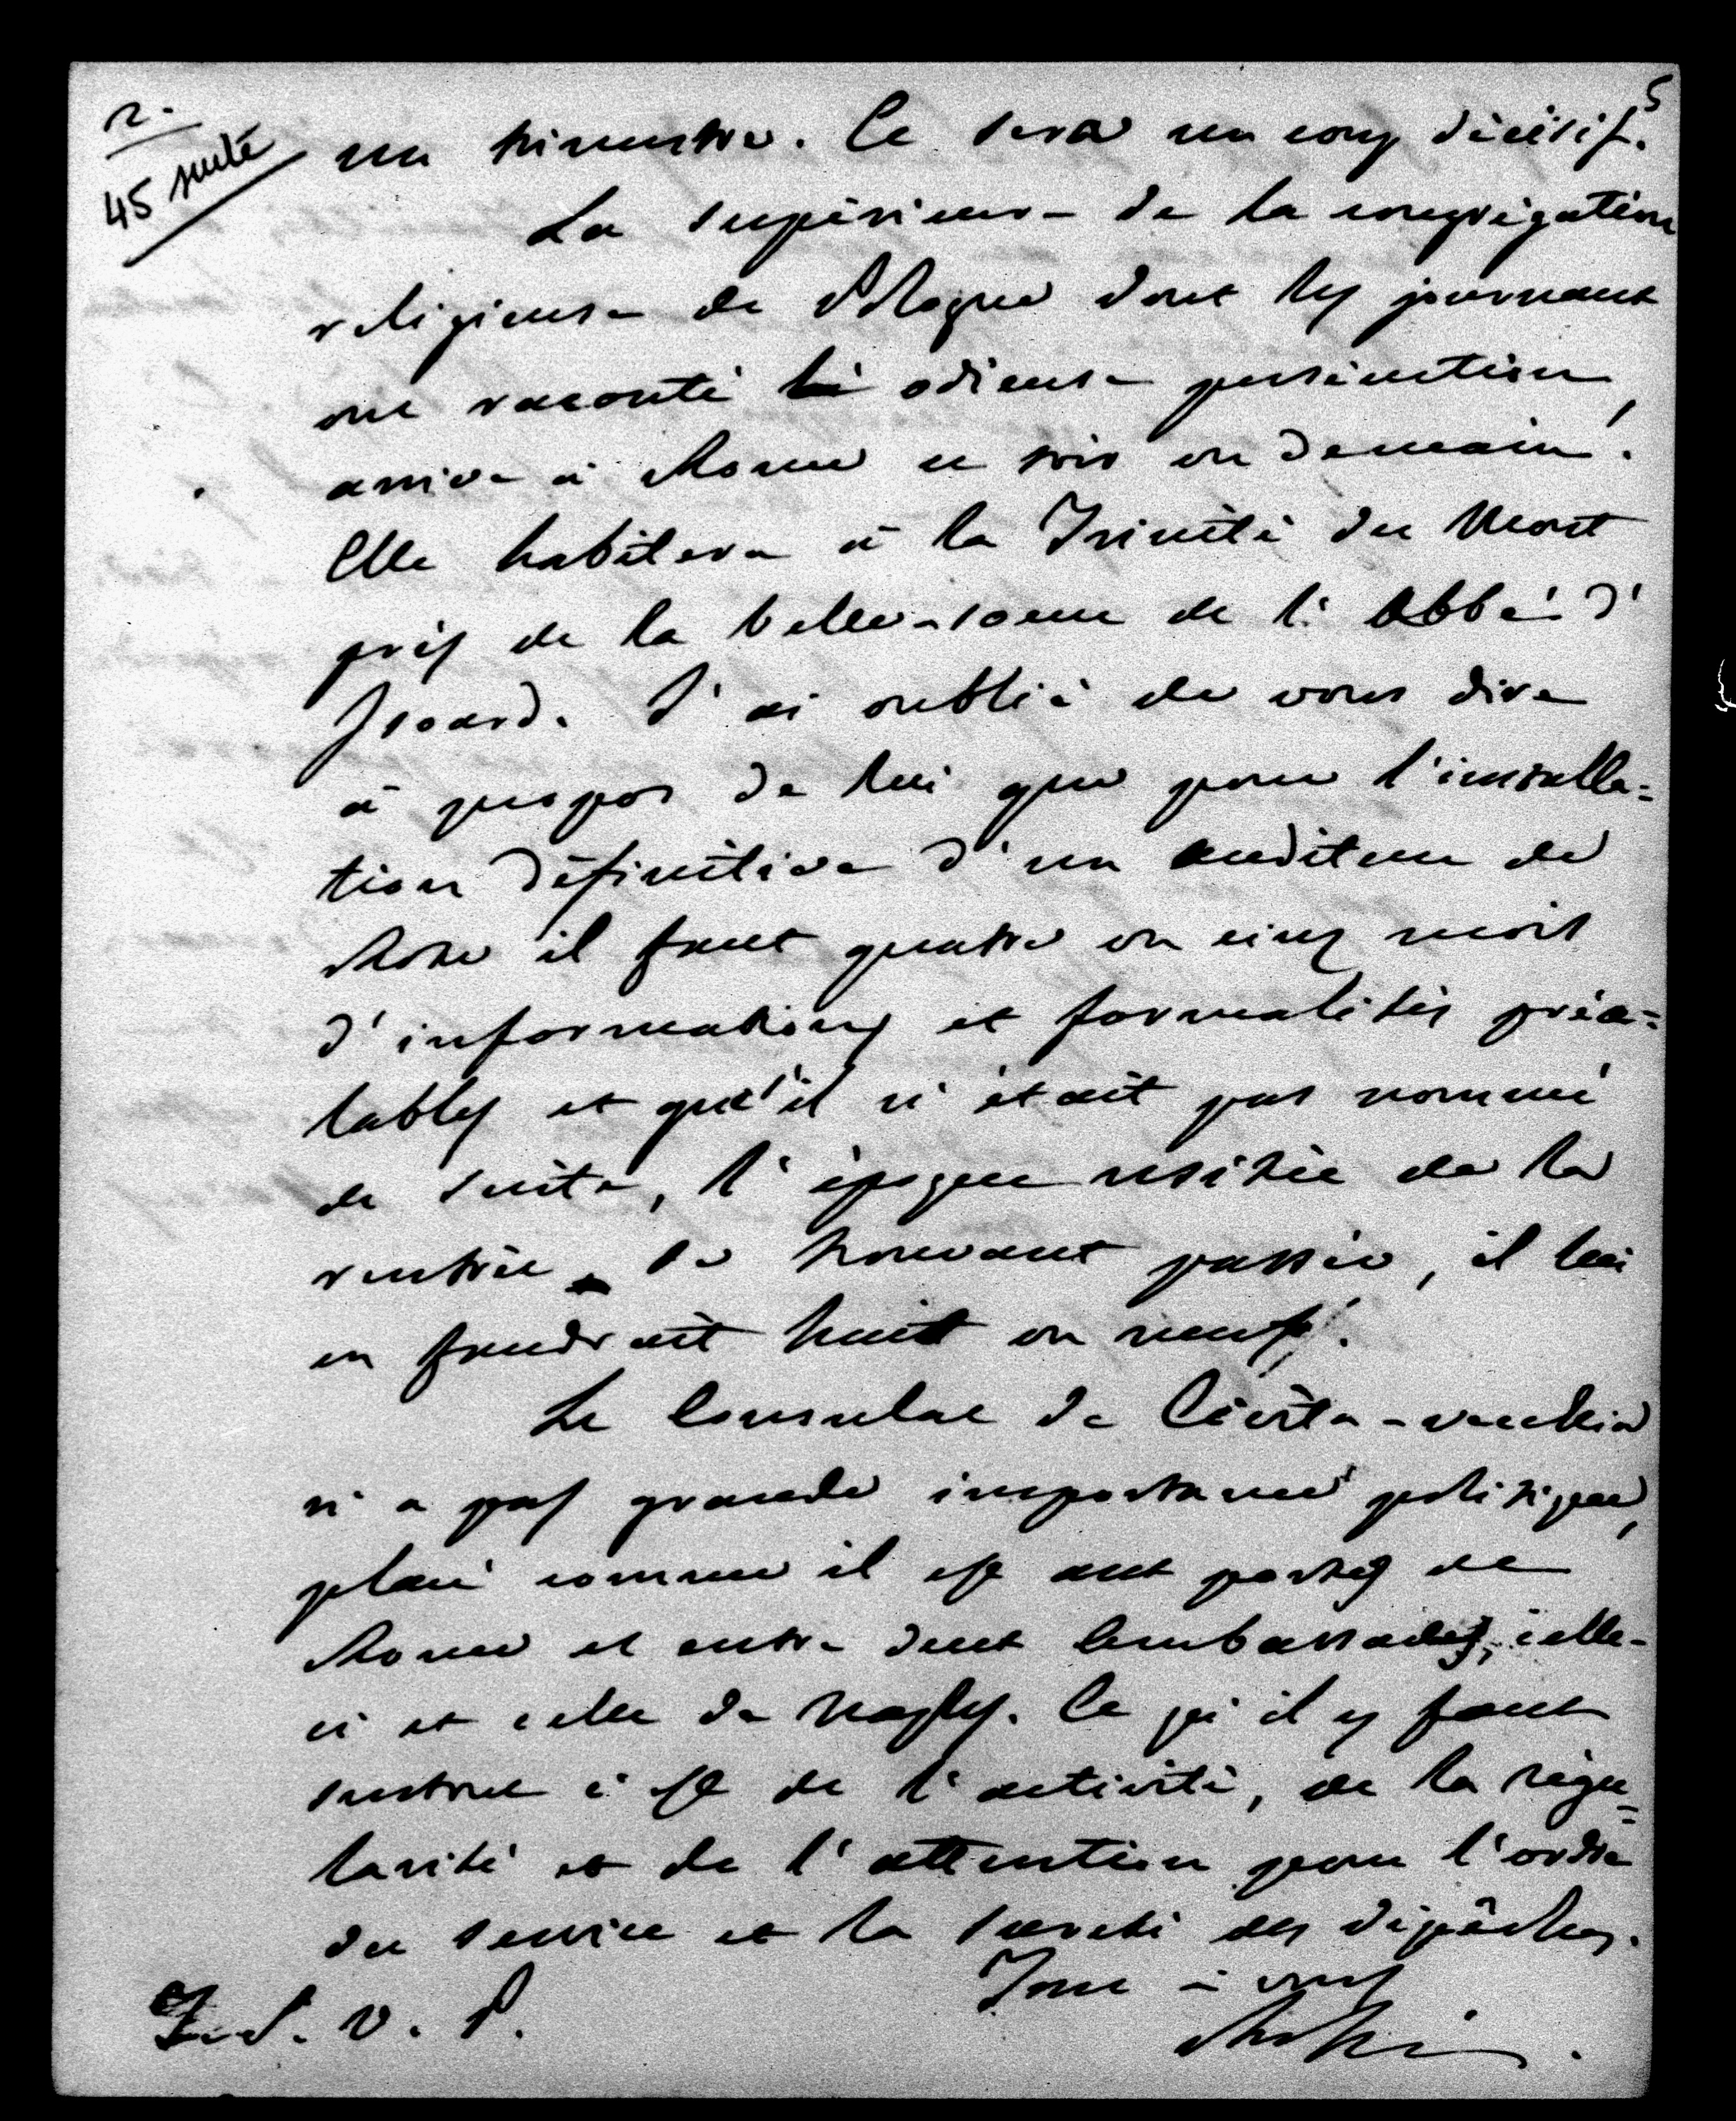 2.
5
45 suite
un trimestre. Ce sera un coup décisif.
La supérieure de la congrégation
religieuse de Pologne dont les journaux
ont raconté odieuse persécution,
arrive à Rome ce soir ou demain.
Elle habitera à la Trinité du Mont
près de la belle-soeur de l'Abbé d'
Isoard. J'ai oublié de vous dire
à propos de lui que pour l'installa=
tion définitive d'un auditeur de
Rote il faut quatre ou cinq mois
d'informations et formalités préa=
lables et qu'il n'était pas nommé
de suite, l'époque usitée de la
rentrée se trouvant passée, il lui
en faudrait huit ou neuf.
Le Consulat de Civita-vecchia
n'a pas grande importance politique,
placé comme il est aux portes de
Rome et entre deux Ambassades, celle-
ci et celle de Naples. Ce qu'il y faut
surtout c'est de l'activité, de la régu=
larité et de l'attention pour l'ordre
du service et la sureté des dépêches.
Tout à vous
Rossi.
T. S. V. P.